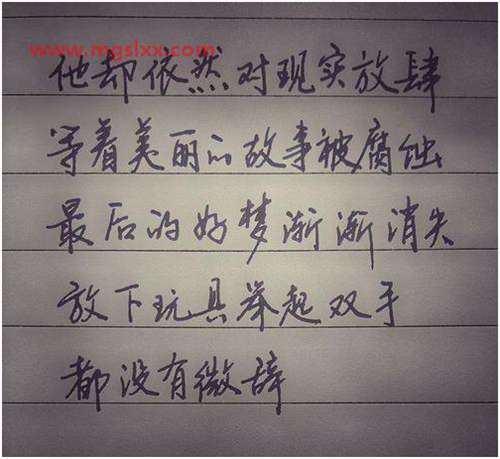 www.mgslxx.com
他却依然对现实放肆
等着美丽的故事被腐蚀
最后的好梦渐渐消失
放下玩具举起双手
都没有微辞